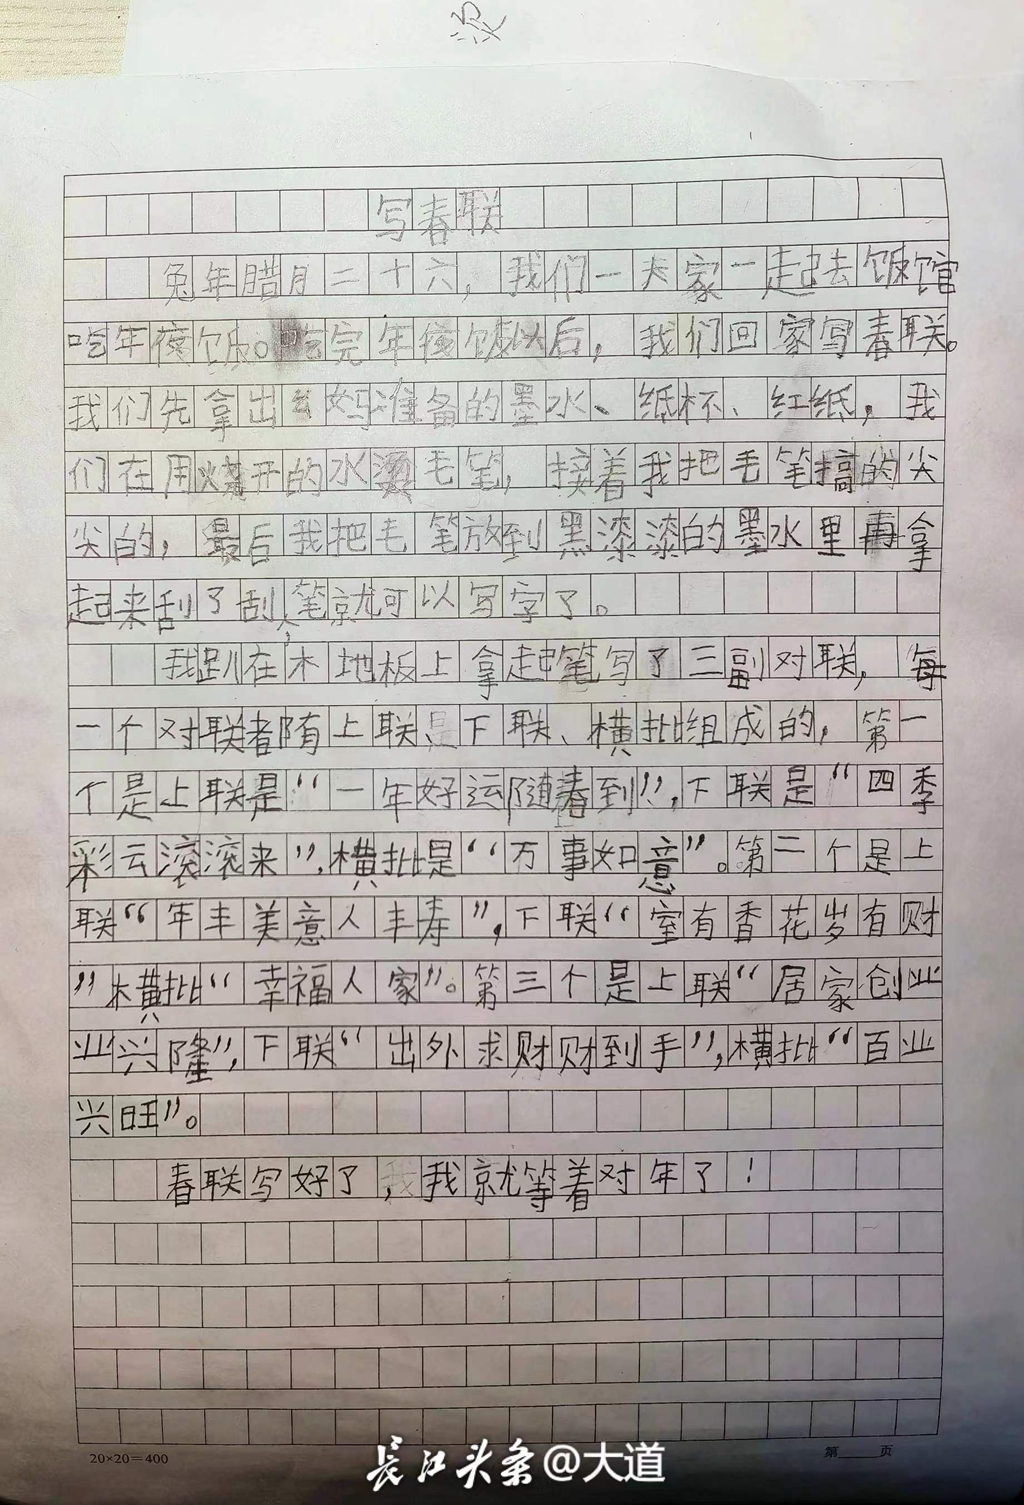 烫
写春联
兔年腊月二十六，我们一大家一起去饭馆
吃年夜饭。吃完年夜饭以后，我们回家写春联。
我们先拿出妈准备的墨水、纸杯、红纸，我
们在用烧开的水烫毛笔，接着我把毛笔搞的尖
尖的，最后我把毛笔放到黑漆漆的墨水里再拿
起来刮了刮，笔就可以写字了。
我趴在木地板上拿起笔写了三副对联，每
一个对联者陏上联、下联、横批组成的，第一
个是上联是“一年好运随春到”，下联是“四季
彩云滚滚来”，横批是“万事如意”。第二个是上
联“年丰美意人丰寿”，下联“室有香花岁有财
”横批“幸福人家”。第三个是上联“居家创业
业兴隆”，下联“出外求财财到手”，横批“百业
兴旺”。
春联写好了，我就等着对年了！
20×20=400
第 页
长江头条@大道